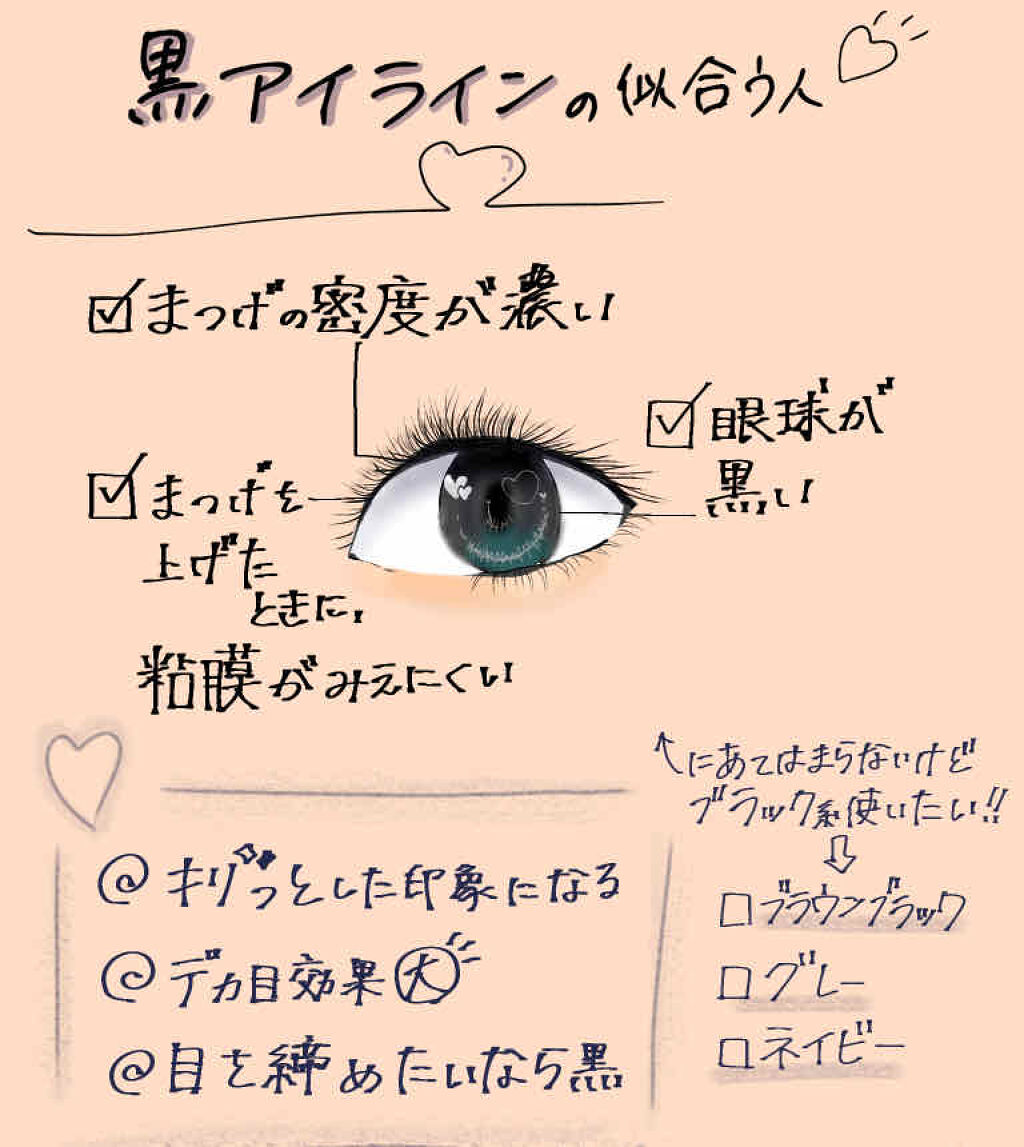 黒アイラインの似合う人
☑まつげの密度が濃い
☑眼球が
黒い
☑まつげを
上げた
ときに、
粘膜がみえにくい
↖にあてはまらないけど
ブラック系使いたい!!
⇩
□ブラウンブラック
□グレー
□ネイビー
@キリっとした印象になる
@デカ目効果大
@目を締めたいなら黒